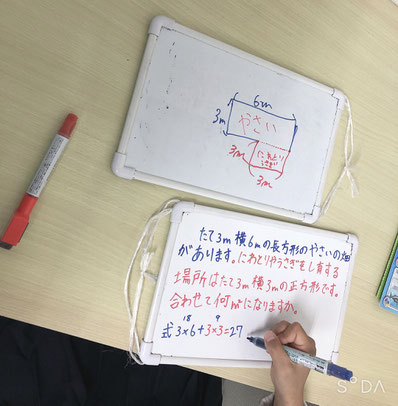 6m
3m
やさい
3m
にわとり
うさぎ
3m
たて3m横6mの長方形のやさいの畑
があります。にわとりやうさぎをし育する
場所はたて3m横3mの正方形です。
合わせて何㎡になりますか。
18 9
式 3×6+3×3=27
SODA